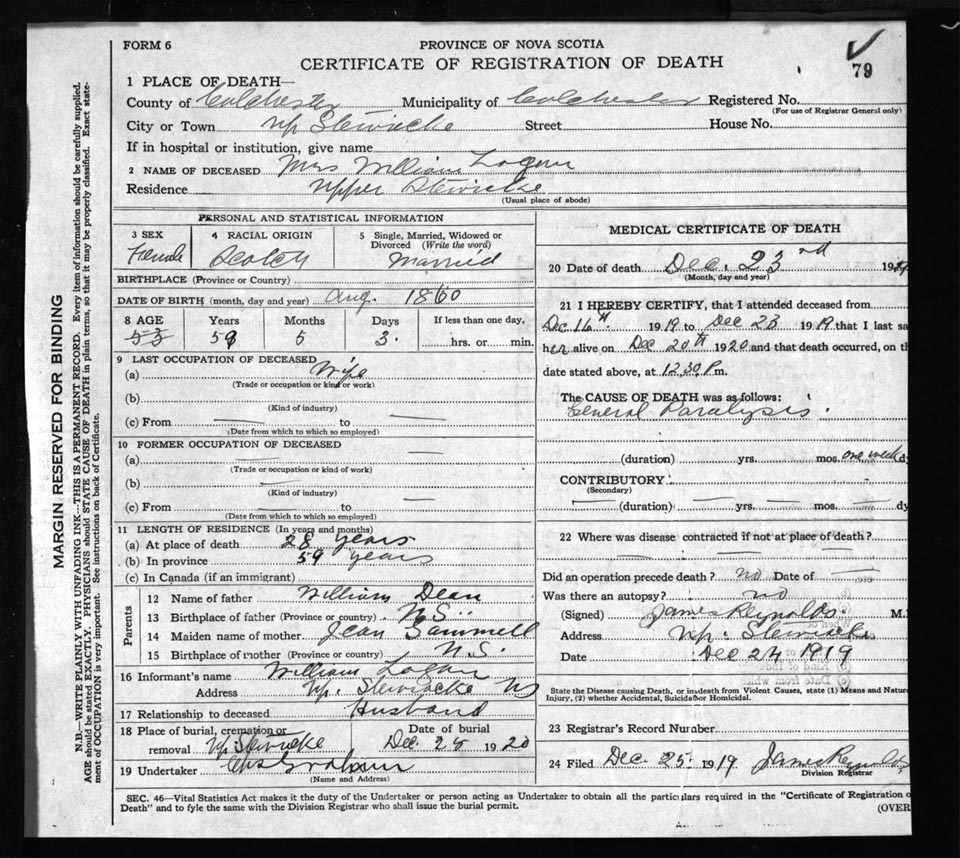 FORM 6
PROVINCE OF NOVA SCOTIA
CERTIFICATE OF REGISTRATION OF DEATH
79
1 PLACE OF DEATH—
County of Colchester Municipality of Colchester Registered No.
(For use of Registrar General only)
City or Town Up Stewiacke Street House No.
If in hospital or institution, give name
2 NAME OF DECEASED Mrs William Logan
Residence Upper Stewiacke
(Usual place of abode)
PERSONAL AND STATISTICAL INFORMATION
3 SEX 4 RACIAL ORIGIN 5 Single, Married, Widowed or Divorced (Write the word)
Female Scotch Married
BIRTHPLACE (Province or Country)
DATE OF BIRTH (month, day and year) Aug. 1860
8 AGE Years Months Days If less than one day,
53 59 5 3. hrs. or min.
9 LAST OCCUPATION OF DECEASED
(a) Wife
(Trade or occupation or kind or work)
(b)
(Kind of industry)
(c) From to
(Date from which to which so employed)
10 FORMER OCCUPATION OF DECEASED
(a)
(Trade or occupation or kind of work)
(b)
(Kind of industry)
(c) From to
(Date from which to which so employed)
11 LENGTH OF RESIDENCE (In years and months)
(a) At place of death 28 years
(b) In province 59 years
(c) In Canada (if an immigrant)
Parents
12 Name of father William Dean
13 Birthplace of father (Province or country) N.S.
14 Maiden name of mother Jean Sammell
15 Birthplace of mother (Province or country) N.S.
16 Informant's name William Logan
Address Up. Stewiacke NS
17 Relationship to deceased Husband
18 Place of burial, cremation or removal Up Stewiacke Date of burial Dec. 25 1920
19 Undertaker Graham
(Name and Address)
MEDICAL CERTIFICATE OF DEATH
20 Date of death Dec. 23rd 1919
(Month, day and year)
21 I HEREBY CERTIFY, that I attended deceased from
Dec 16th. 1919 to Dec 23 1919 that I last sa
her alive on Dec 20th 1920 and that death occurred, on th
date stated above, at 12.30 P.m.
The CAUSE OF DEATH was as follows:
General Paralysis.
(duration) yrs. mos. one week dy
CONTRIBUTORY
(Secondary)
(duration) yrs. mos. dy
22 Where was disease contracted if not at place of death?
Did an operation precede death? no Date of
Was there an autopsy? no
(Signed) James Reynolds. M.
Address Up. Stewiacke
Date Dec 24 1919
State the Disease causing Death, or in death from Violent Causes, state (1) Means and Natur
Injury, (2) whether Accidental, Suicidal or Homicidal.
23 Registrar's Record Number
24 Filed Dec. 25. 1919 James Reynolds
Division Registrar
SEC. 46—Vital Statistics Act makes it the duty of the Undertaker or person acting as Undertaker to obtain all the particulars required in the "Certificate of Registration o
Death" and to fyle the same with the Division Registrar who shall issue the burial permit.
(OVER
MARGIN RESERVED FOR BINDING
N.B.—WRITE PLAINLY WITH UNFADING INK—THIS IS A PERMANENT RECORD. Every item of information should be carefully supplied.
AGE should be stated EXACTLY. PHYSICIANS should STATE CAUSE OF DEATH in plain terms, so that it may be properly classified. Exact state-
ment of OCCUPATION is very important. See instructions on back of Certificate.